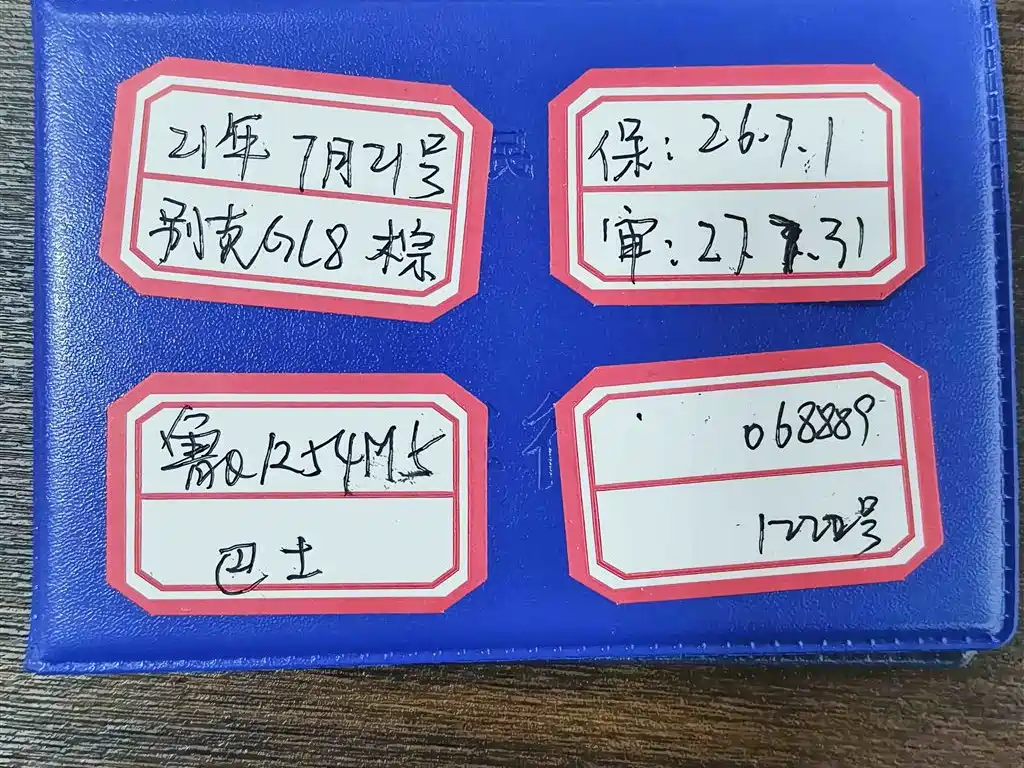 21年 7月21号
别克GL8 棕
保: 26.7.1
审: 27.7.31
鲁Q1254M5
巴士
068889
1222号